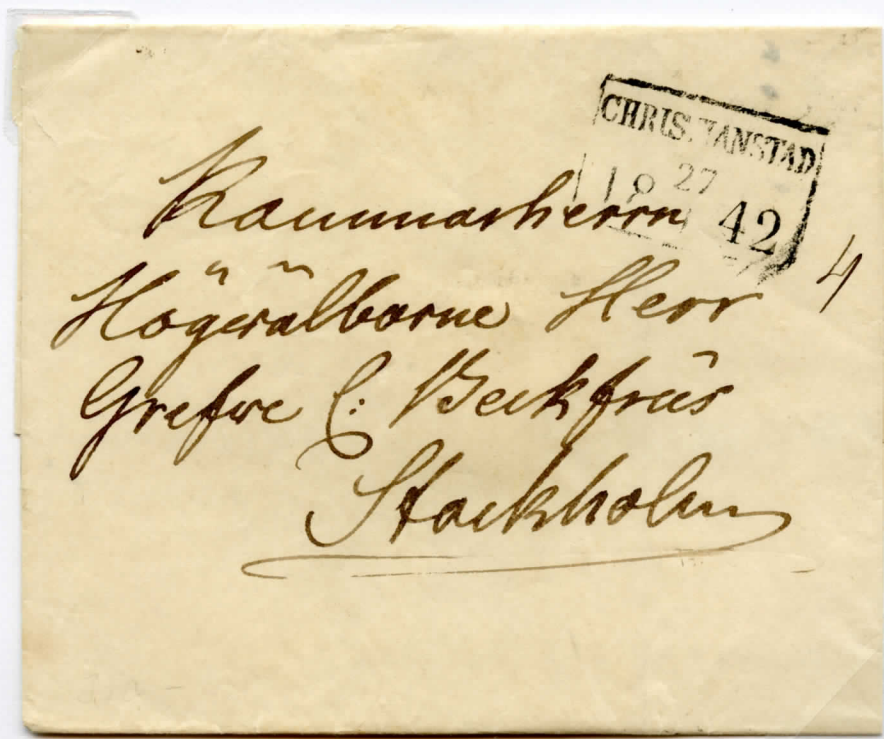 CHRISTIANSTAD
27
42
4
Kammarherrn
Högwälborne Herr
Grefwe C: Beckfriis
Stockholm